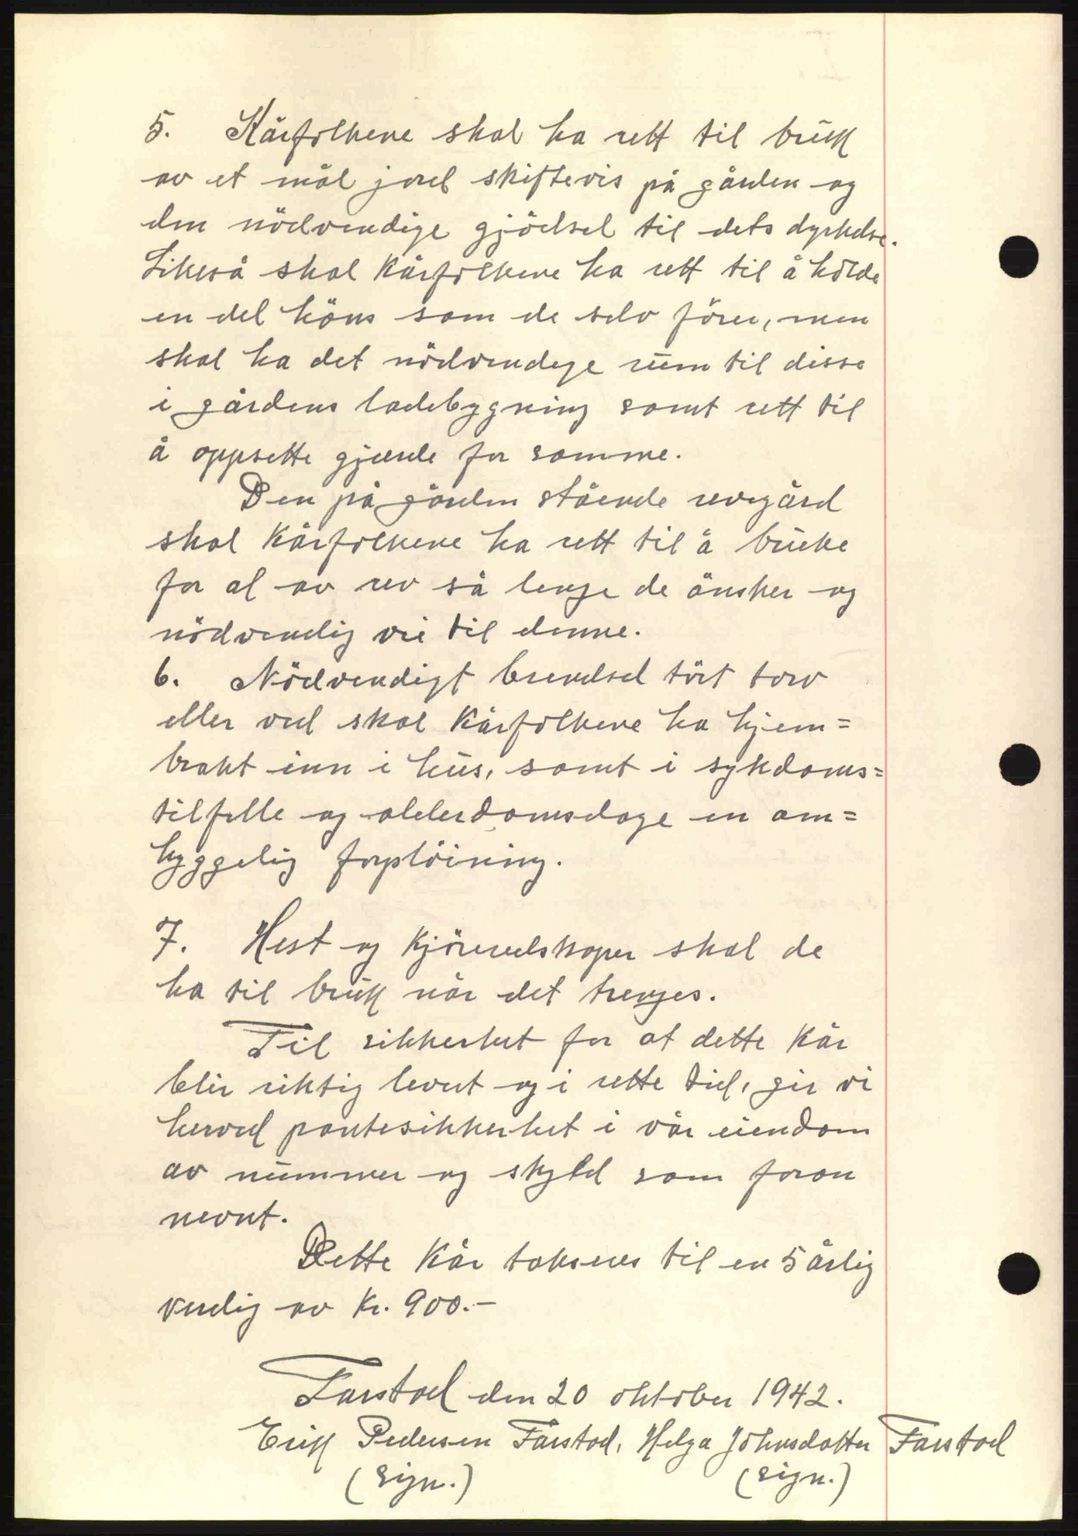 5. Kårfolkene skal ha rett til bruk
av et mål jord skiftevis på gården og
den nödvendige gjödsel til dets dyrkelse.
Likeså skal Kårfolkene ha rett til å holde
en del höns som de selv förer, men
skal ha det nödvendige rum til disse
i gårdens ladebygning samt rett til
å oppsette gjærde for samme.
Den på gården stående revegård
skal Kårfolkene ha rett til å bruke
for al av rev så lenge de önsker og
nödvendig vei til denne.
6. Nödvendigt brendsel tört torv
eller ved skal Kårfolkene ha hjem=
brakt inn i hus, samt i sykdoms=
tilfelle og alderdomsdage en om=
hyggelig forpleining.
7. Hest og Kjöreredskaper skal de
ha til bruk når det trenges.
Til sikkerhet for at dette Kår
blir riktig levert og i rette tid, gir vi
herved pantesikkerhet i vår eiendom
av nummer og skyld som foran
nevnt.
Dette Kår takseres til en 5 årlig
verdig av Kr. 900.-
Farstad den 20 oktober 1942.
Erik Pedersen Farstad, Helga Johnsdatter Farstad
(sign.) (sign.)